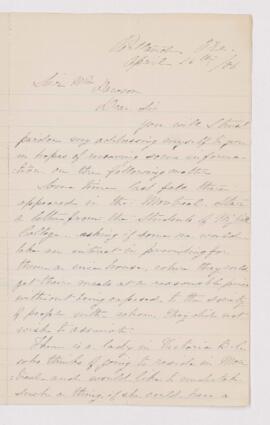 April 16th /86
Sir Wm Dawson
Dear Sir
you will I trust
pardon my addressing myself to you
in hopes of receiving some informa-
tion on the following matter
Some time last fall there
appeared in the Montreal Star
a letter from the Students of McGill
College asking if some one would
take an interest in providing for
them a house, where they could
get their meals at a reasonable price
without being exposed to the society
of people with whom they did not
wish to associate.
There is a lady in Victoria B.C.
who thinks of going to reside in Mon
treal and would like to undertake
such a thing if she could have a